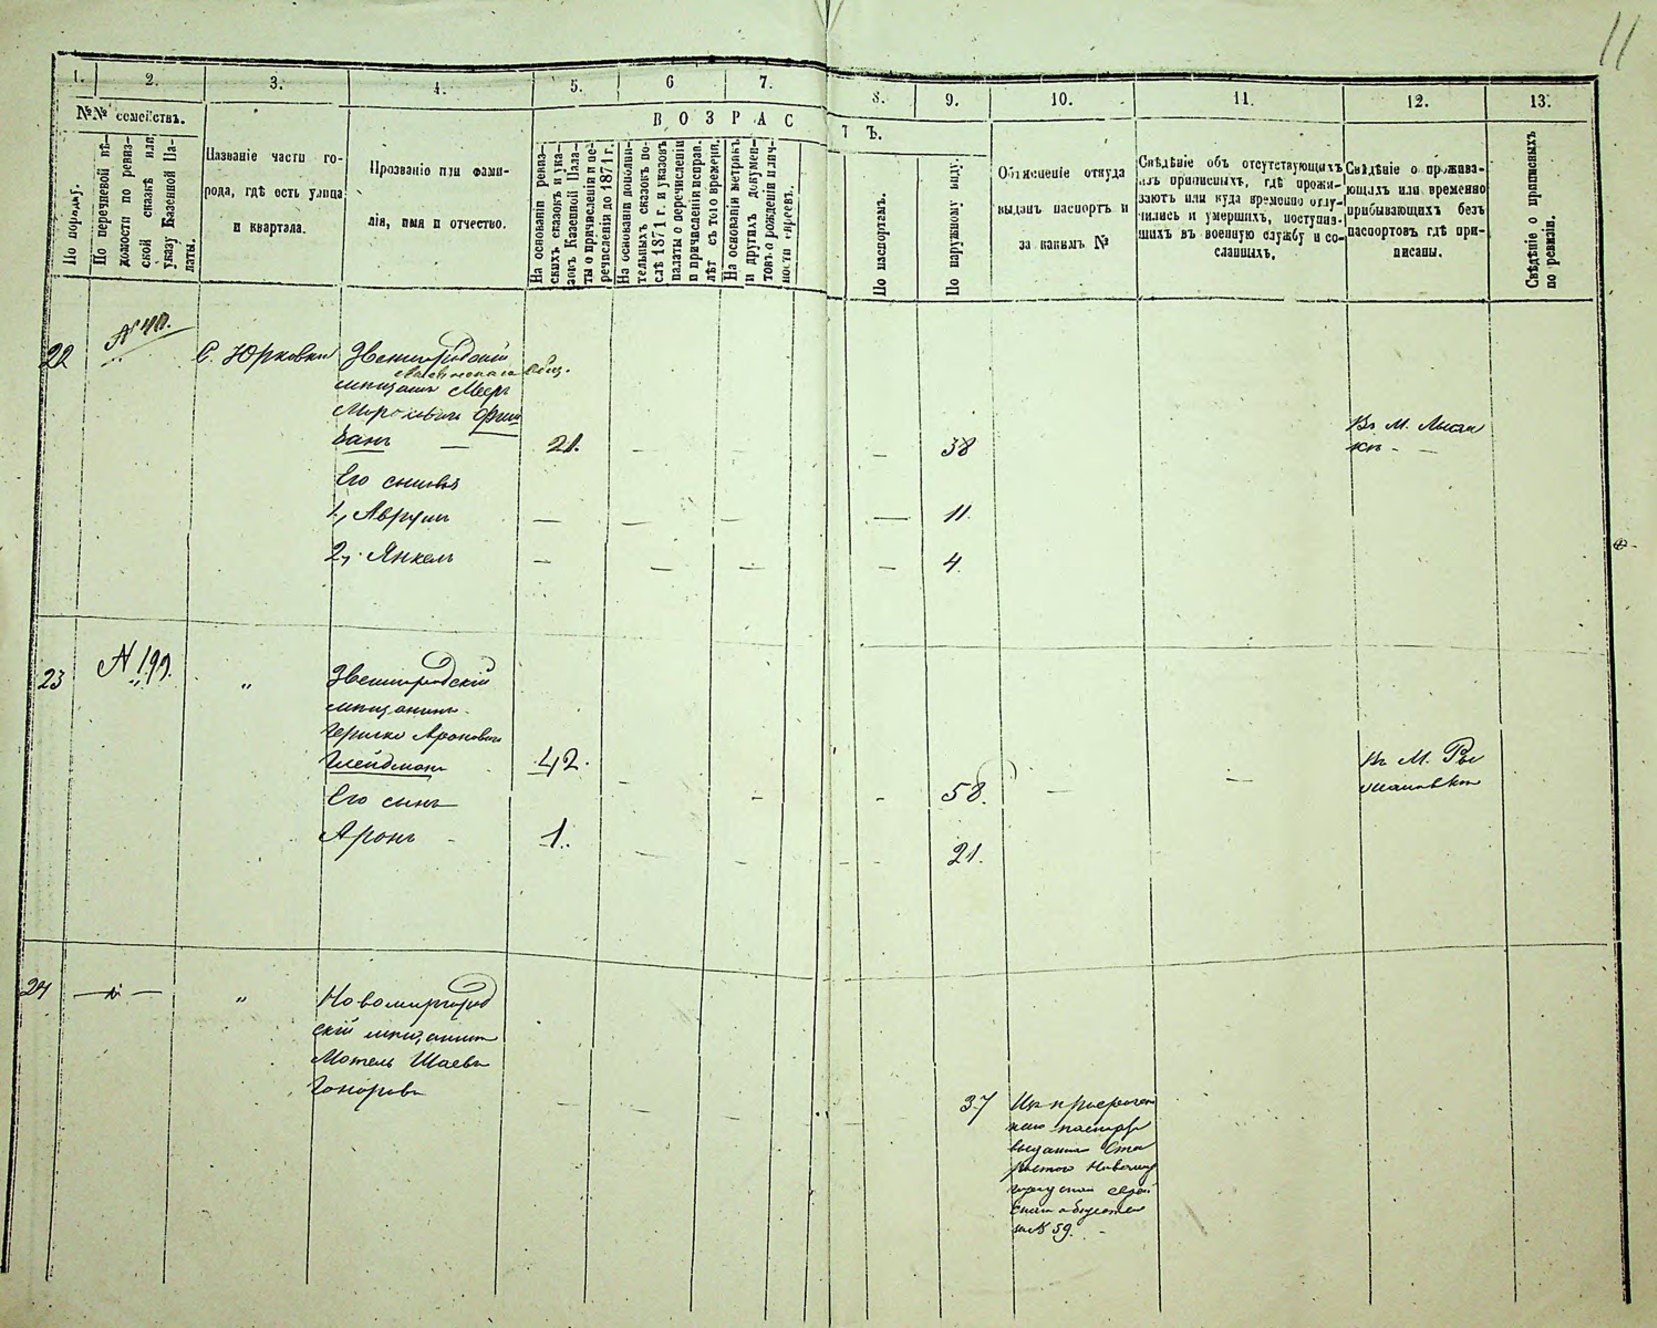 11
1.
2.
3.
4.
5.
6
7.
8.
9.
10.
11.
12.
13.
№№ семействъ.
ВОЗРАСТЪ.
По порядку.
По перечневой вѣ-
домости по ревиз-
ской сказкѣ или
указу Казенной Па-
латы.
Названіе части го-
рода, гдѣ есть улица
и квартала.
Прозваніе или фами-
лія, имя и отчество.
На основаніи реви-
скихъ сказокъ и ука-
зовъ Казенной Пала-
ты о причисленіи и пе-
речисленіи до 1871 г.
На основаніи дополни-
тельныхъ сказокъ по-
слѣ 1871 г. и указовъ
палаты о перечисленіи
и причисленіи исправ.
лѣт съ того времени.
На основаніи метрикъ
и другихъ докумен-
товъ о рожденіи и лич-
ности евреевъ.
По паспортамъ.
По наружному виду.
Объясненіе откуда
выданъ паспортъ и
за какимъ №
Свѣдѣніе объ отсутствующихъ
изъ приписныхъ, гдѣ прожи-
ваютъ или куда временно отлу-
чились и умершихъ, поступив-
шихъ въ военную службу и со-
сланныхъ.
Свѣдѣніе о прожива-
ющихъ или временно
прибывающихъ безъ
паспортовъ гдѣ при-
писаны.
Свѣдѣніе о приписныхъ
по ревизіи.
22
С. Юрковка
Звенигородскій
мѣщанинъ Мееръ
банъ — 21. — — — 38
Его сыновья
1, Аврумъ — — — — 11.
2, Янкель — — — — 4.
23
N 199.
"
Звенигородскій
мѣщанинъ
Гершко Ароновъ
Глейдманъ 42. — — — 58. — —
Его сынъ
Аронъ 1. — — — 21.
Въ М. Ры
жановкѣ
24
— " —
"
Новомиргород
скій мѣщанинъ
Мотель Шаевъ
Гоноровъ — — — — 37
паспорту
выданному Ста
ростою Новомир
за N 59.